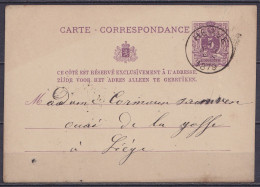 CARTE - CORRESPONDANCE
CE CÔTÉ EST RÉSERVÉ EXCLUSIVEMENT À L'ADRESSE.
ZIJDE VOOR HET ADRES ALLEEN TE GEBRUIKEN.
5
1879
Madame
quai de la goffe
à Liége